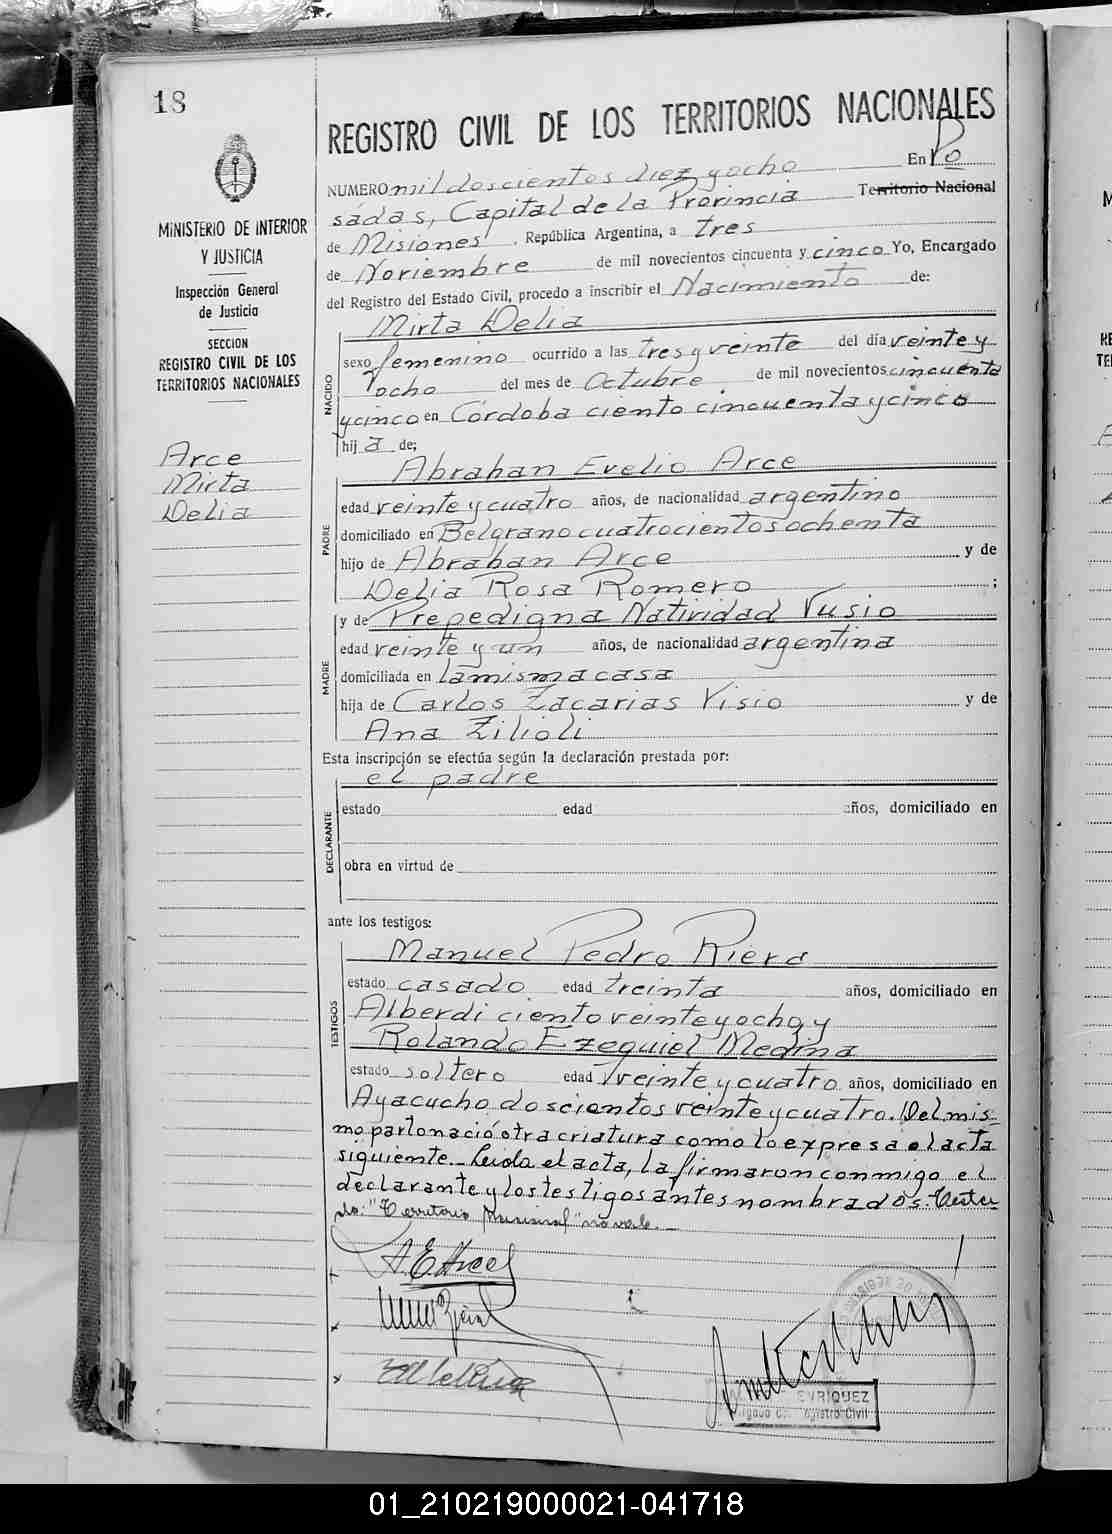 18
REGISTRO CIVIL DE LOS TERRITORIOS NACIONALES
MINISTERIO DE INTERIOR
Y JUSTICIA
Inspección General
de Justicia
SECCION
REGISTRO CIVIL DE LOS
TERRITORIOS NACIONALES
Arce
Mirta
Delia
NUMERO mil doscientos diez y ocho En Po
sadas, Capital de la Provincia Territorio Nacional
de Misiones, República Argentina, a tres
de Noviembre de mil novecientos cincuenta y cinco Yo, Encargado
del Registro del Estado Civil, procedo a inscribir el Nacimiento de:
NACIDO
Mirta Delia
sexo femenino ocurrido a las tres y veinte del día veinte y
ocho del mes de Octubre de mil novecientos cincuenta
y cinco en Córdoba ciento cincuenta y cinco
hij a de;
PADRE
Abrahan Evelio Arce
edad veinte y cuatro años, de nacionalidad argentino
domiciliado en Belgrano cuatrocientos ochenta
hijo de Abrahan Arce y de
Delia Rosa Romero ;
MADRE
y de Prepedigna Natividad Vusio
edad veinte y un años, de nacionalidad argentina
domiciliada en la misma casa
hija de Carlos Zacarias Visio y de
Ana Zilioli
Esta inscripción se efectúa según la declaración prestada por:
DECLARANTE
el padre
estado edad años, domiciliado en
obra en virtud de
ante los testigos:
TESTIGOS
Manuel Pedro Riera
estado casado edad treinta años, domiciliado en
Alberdi ciento veinte y ocho y
Rolando Ezequiel Medina
estado soltero edad veinte y cuatro años, domiciliado en
Ayacucho doscientos veinte y cuatro. Del mis-
mo parto nació otra criatura como lo expresa el acta
siguiente.- Leida el acta, la firmaron conmigo el
declarante y los testigos antes nombrados. Testa
do: "Territorio Nacional" no vale.-
A. E. Arce
ENRIQUEZ
Registro Civil
01_210219000021-041718